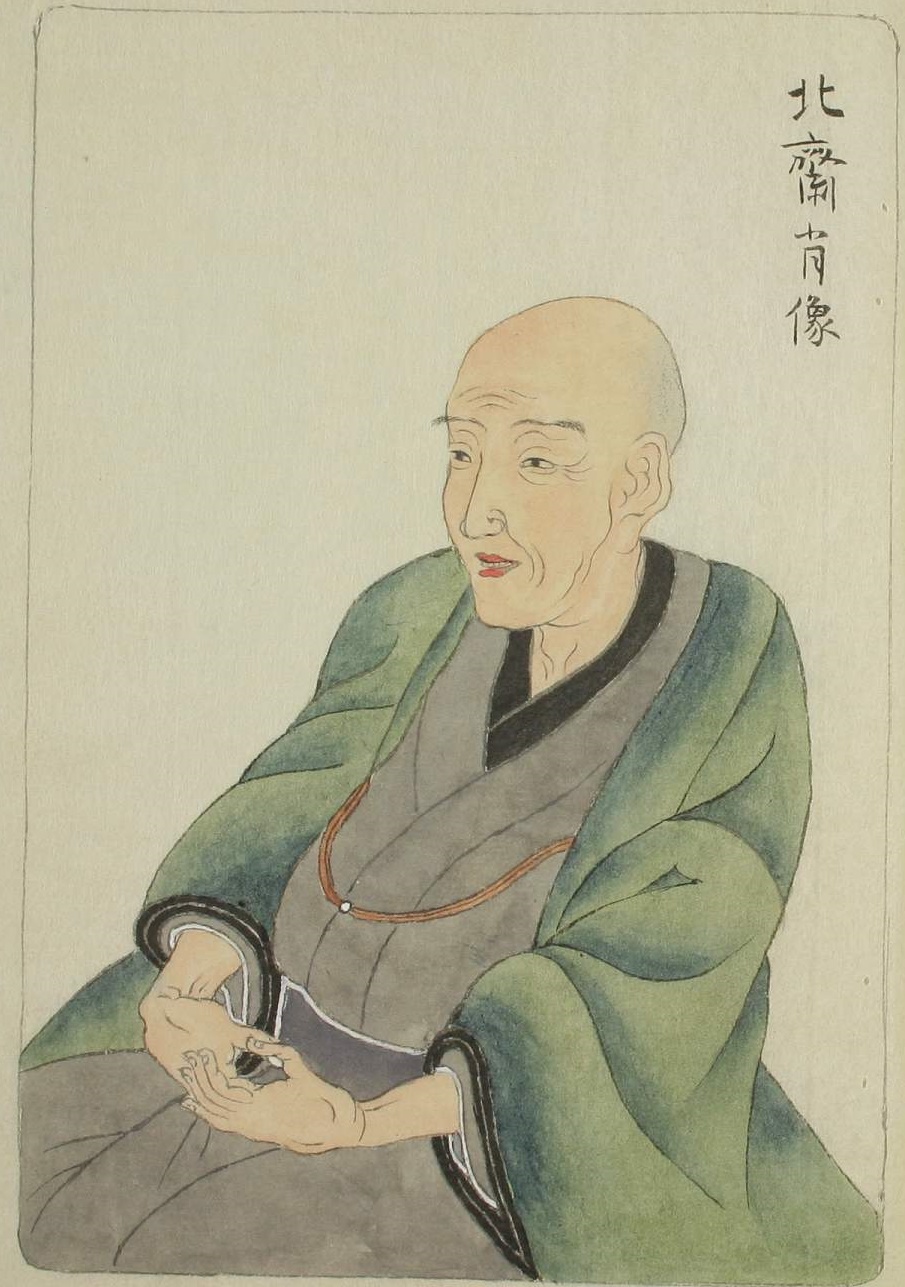 北齋肖像